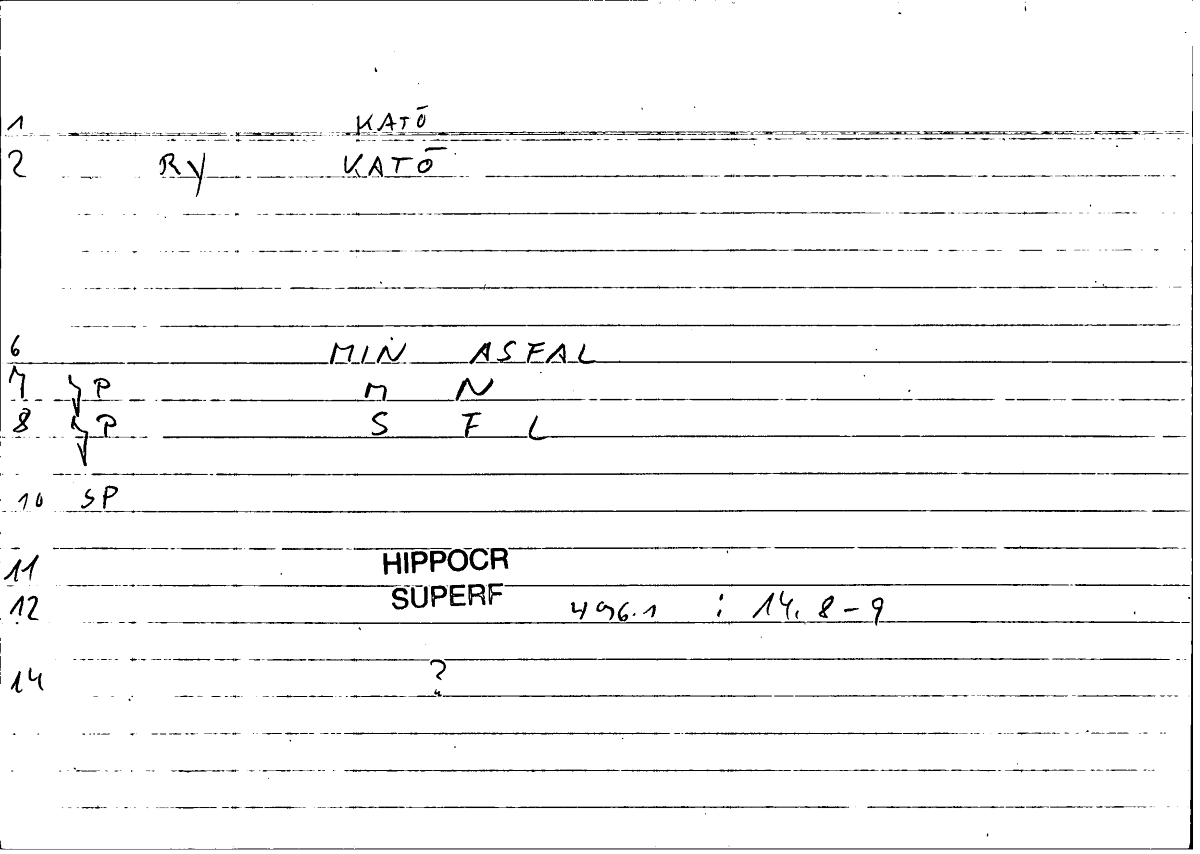 1 KATŌ
2 Ry KATŌ
6 MIN ASFAL
7 P M N
8 P S F L
10 SP
11 HIPPOCR
12 SUPERF 496.1 : 14. 8-9
14 ?